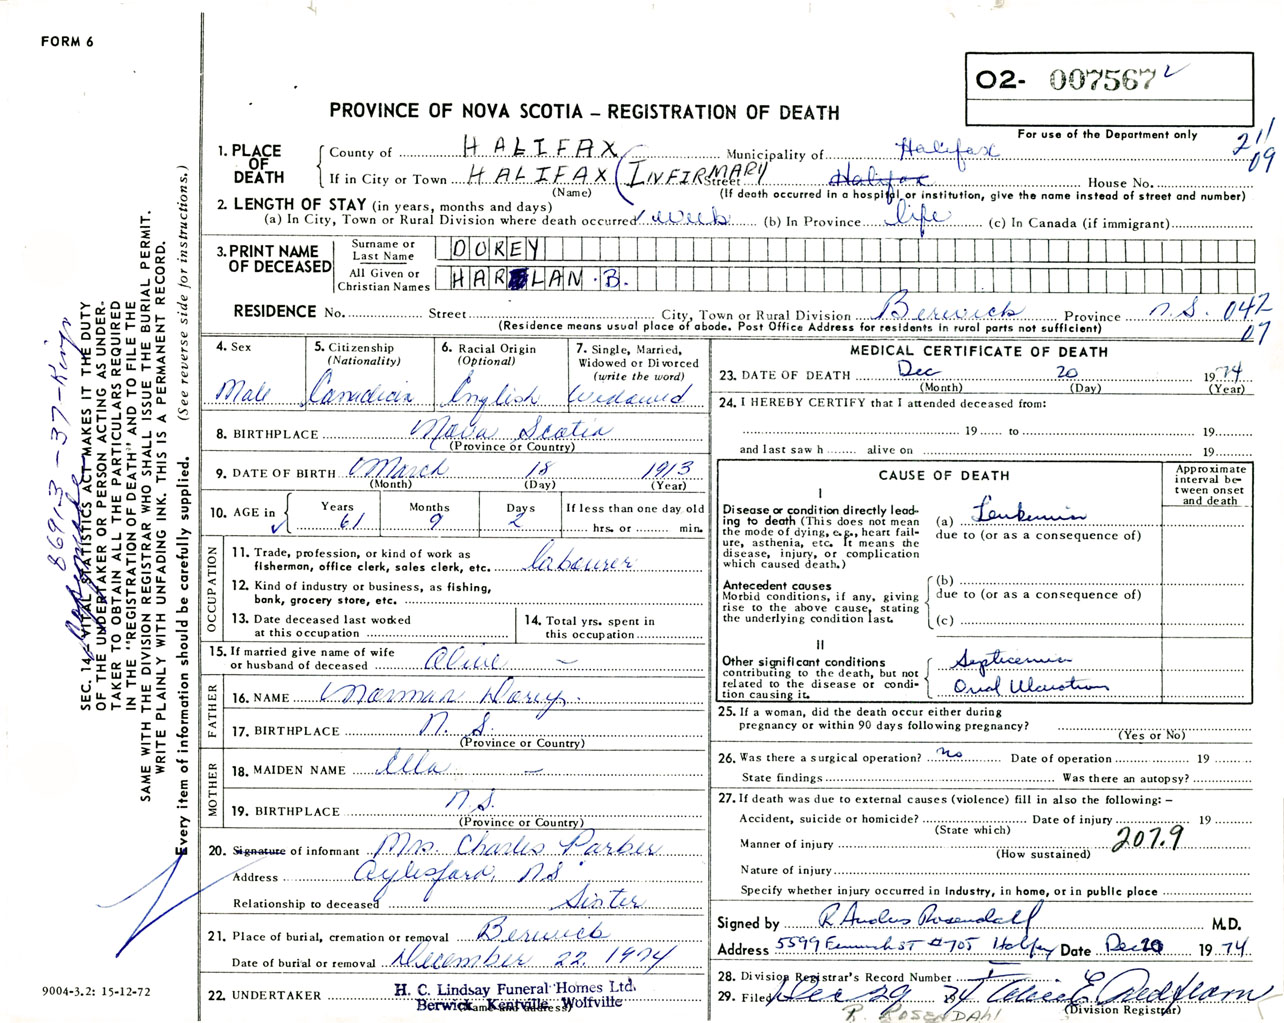 FORM 6
O2- 007567
PROVINCE OF NOVA SCOTIA – REGISTRATION OF DEATH
For use of the Department only
211
09
1. PLACE OF DEATH
County of HALIFAX Municipality of Halifax
If in City or Town HALIFAX (INFIRMARY Street Halifax House No.
(Name) (If death occurred in a hospital or institution, give the name instead of street and number)
2. LENGTH OF STAY (in years, months and days)
(a) In City, Town or Rural Division where death occurred 1 week (b) In Province life (c) In Canada (if immigrant)
3. PRINT NAME OF DECEASED
Surname or Last Name DOREY
All Given or Christian Names HARLAN B.
RESIDENCE No. Street City, Town or Rural Division Berwick Province N.S. 042
07
(Residence means usual place of abode. Post Office Address for residents in rural parts not sufficient)
4. Sex
Male
5. Citizenship
(Nationality)
Canadian
6. Racial Origin
(Optional)
English
7. Single, Married,
Widowed or Divorced
(write the word)
Widowed
8. BIRTHPLACE Nova Scotia
(Province or Country)
9. DATE OF BIRTH March 18 1913
(Month) (Day) (Year)
10. AGE in
Years Months Days If less than one day old
61 9 2 hrs. or min.
OCCUPATION
11. Trade, profession, or kind of work as
fisherman, office clerk, sales clerk, etc. labourer
12. Kind of industry or business, as fishing,
bank, grocery store, etc.
13. Date deceased last worked
at this occupation
14. Total yrs. spent in
this occupation
15. If married give name of wife
or husband of deceased Olive –
FATHER
16. NAME Norman Dorey
17. BIRTHPLACE N.S.
(Province or Country)
MOTHER
18. MAIDEN NAME Ella –
19. BIRTHPLACE N.S.
(Province or Country)
20. Signature of informant Mrs. Charles Parker
Address Aylesford, N.S
Relationship to deceased Sister
21. Place of burial, cremation or removal Berwick
Date of burial or removal December 22, 1974
22. UNDERTAKER H. C. Lindsay Funeral Homes Ltd.
Berwick, Kentville, Wolfville
(Name and address)
MEDICAL CERTIFICATE OF DEATH
23. DATE OF DEATH Dec 20 1974
(Month) (Day) (Year)
24. I HEREBY CERTIFY that I attended deceased from:
19 to 19
and last saw h alive on 19
CAUSE OF DEATH
Approximate interval between onset and death
I
Disease or condition directly leading
to death (This does not mean
the mode of dying, e.g., heart failure,
asthenia, etc. It means the
disease, injury, or complication
which caused death.)
(a) Leukemia
due to (or as a consequence of)
Antecedent causes
Morbid conditions, if any, giving
rise to the above cause, stating
the underlying condition last.
(b)
due to (or as a consequence of)
(c)
II
Other significant conditions
contributing to the death, but not
related to the disease or condition
causing it.
Septicemia
Oral Ulceration
25. If a woman, did the death occur either during
pregnancy or within 90 days following pregnancy?
(Yes or No)
26. Was there a surgical operation? no Date of operation 19
State findings Was there an autopsy?
27. If death was due to external causes (violence) fill in also the following: –
Accident, suicide or homicide? Date of injury 19
(State which)
Manner of injury 207.9
(How sustained)
Nature of injury
Specify whether injury occurred in industry, in home, or in public place
Signed by M.D.
Address 5599 Fenwick ST #705 Halifax Date Dec 20 1974
28. Division Registrar's Record Number
29. Filed Dec 29 1974
(Division Registrar)
R. ROSENDAHL
SEC. 14 – VITAL STATISTICS ACT MAKES IT THE DUTY
OF THE UNDERTAKER OR PERSON ACTING AS UNDERTAKER
TO OBTAIN ALL THE PARTICULARS REQUIRED
IN THE "REGISTRATION OF DEATH" AND TO FILE THE
SAME WITH THE DIVISION REGISTRAR WHO SHALL ISSUE THE BURIAL PERMIT.
WRITE PLAINLY WITH UNFADING INK. THIS IS A PERMANENT RECORD.
Every item of information should be carefully supplied. (See reverse side for instructions.)
8691-3-37-King
9004-3.2: 15-12-72